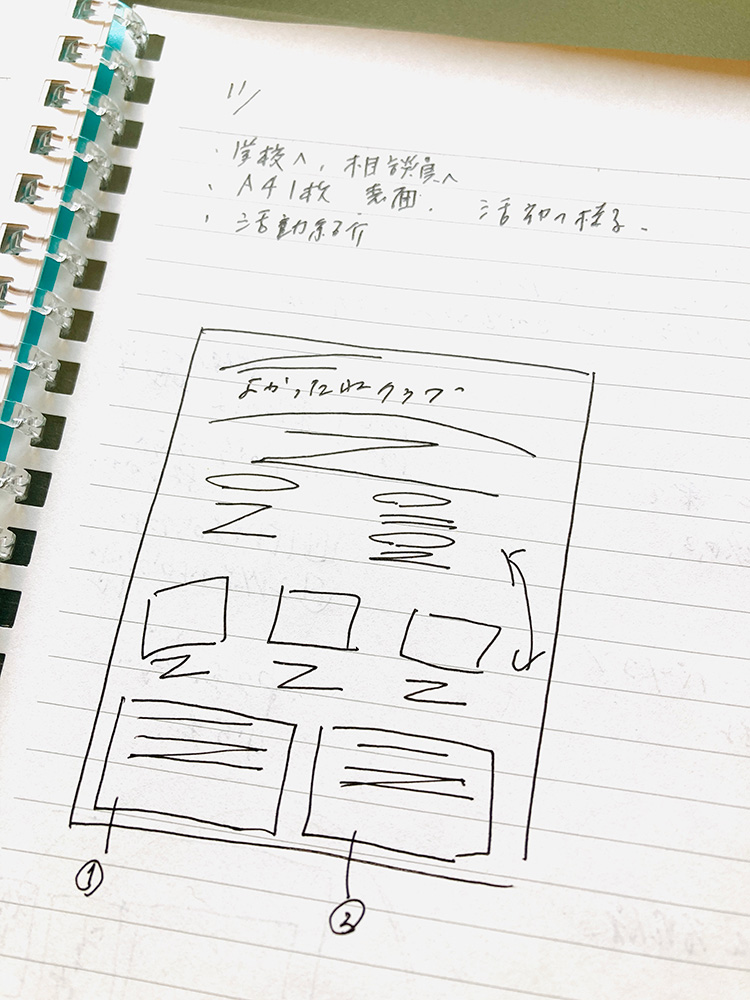 11/
・学校へ、相談員へ
・A4 1枚 表面、活動の様子、
・活動紹介
よかったねクラブ
①
②